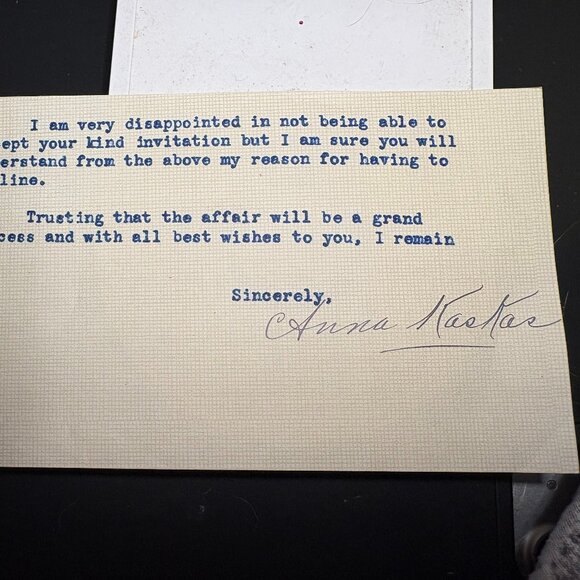 I am very disappointed in not being able to
ept your kind invitation but I am sure you will
erstand from the above my reason for having to
line.
Trusting that the affair will be a grand
cess and with all best wishes to you, I remain
Sincerely,
Anna Kaskas